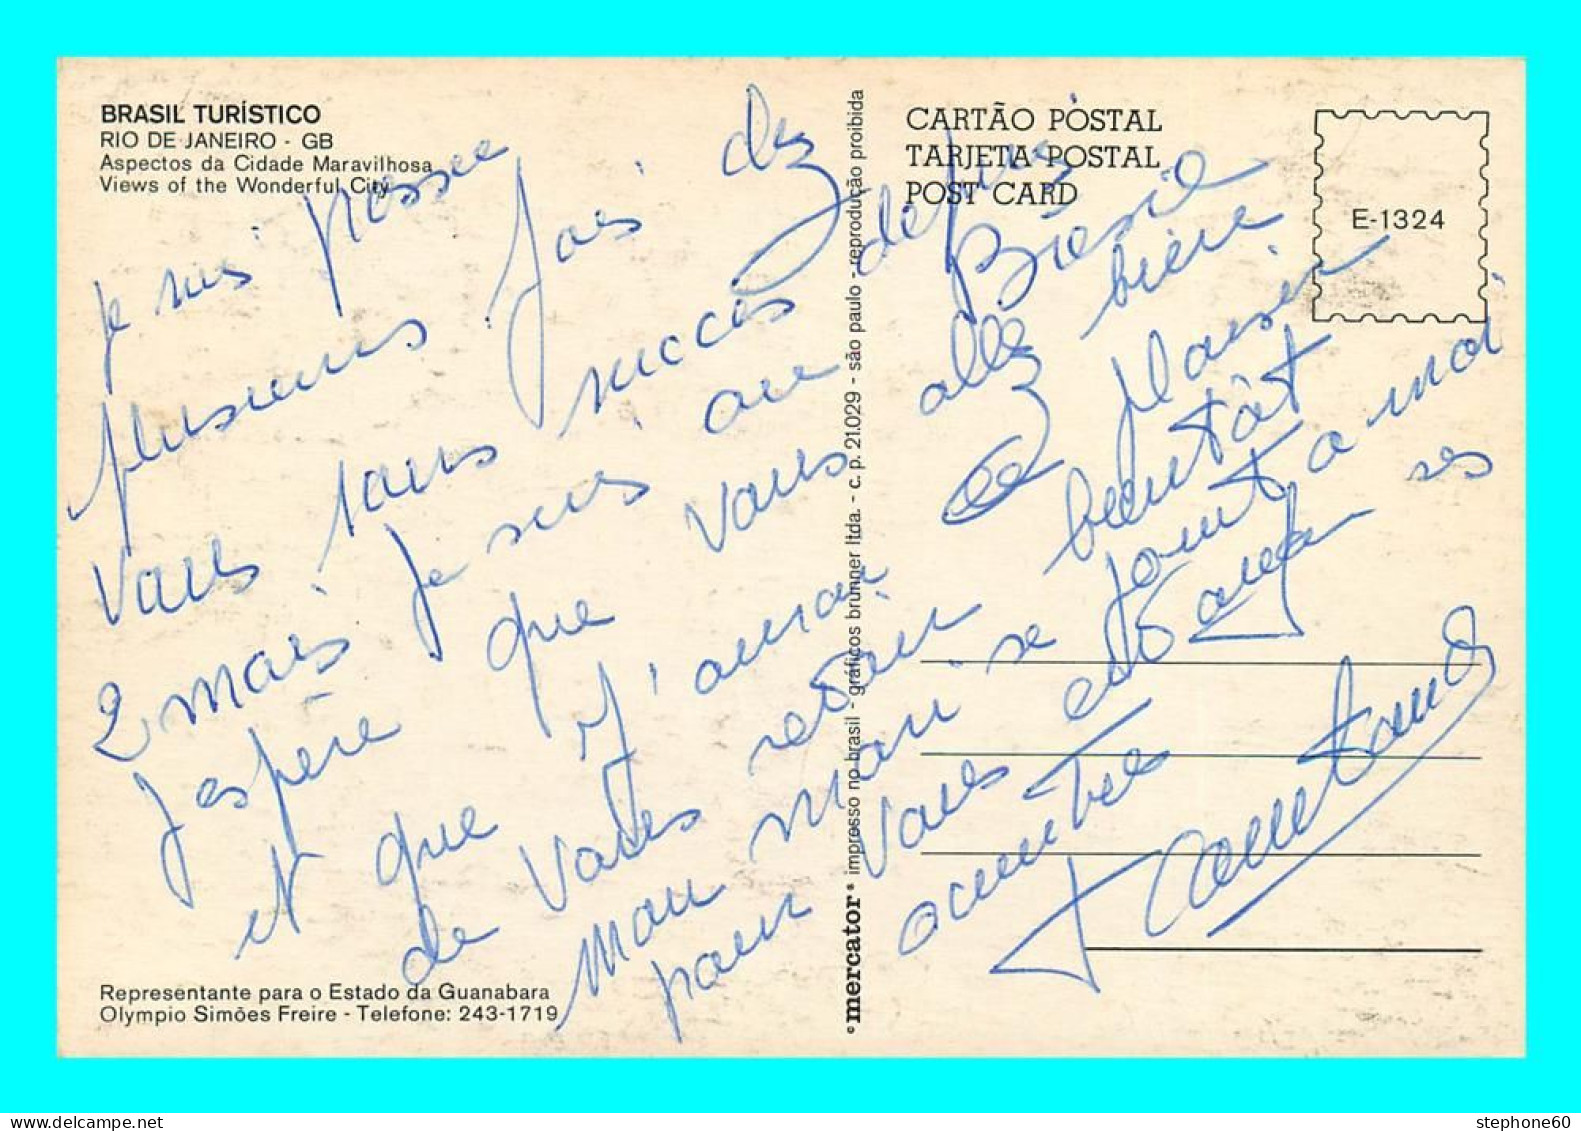 BRASIL TURÍSTICO
RIO DE JANEIRO - GB
Aspectos da Cidade Maravilhosa
Views of the Wonderful City
je suis passée
plusieurs fois chez
vous sans succès depuis
2 mois je suis au Brésil
J'espère que vous allez bien
et que j'aurai le plaisir
de vous revoir bientôt
mon mari se joint à moi
pour vous
ses
amitiés
Representante para o Estado da Guanabara
Olympio Simões Freire - Telefone: 243-1719
°mercator° impresso no brasil - gráficos brunner ltda. - c. p. 21.029 - são paulo - reprodução proibida
CARTÃO POSTAL
TARJETA POSTAL
POST CARD
E-1324
stephone60